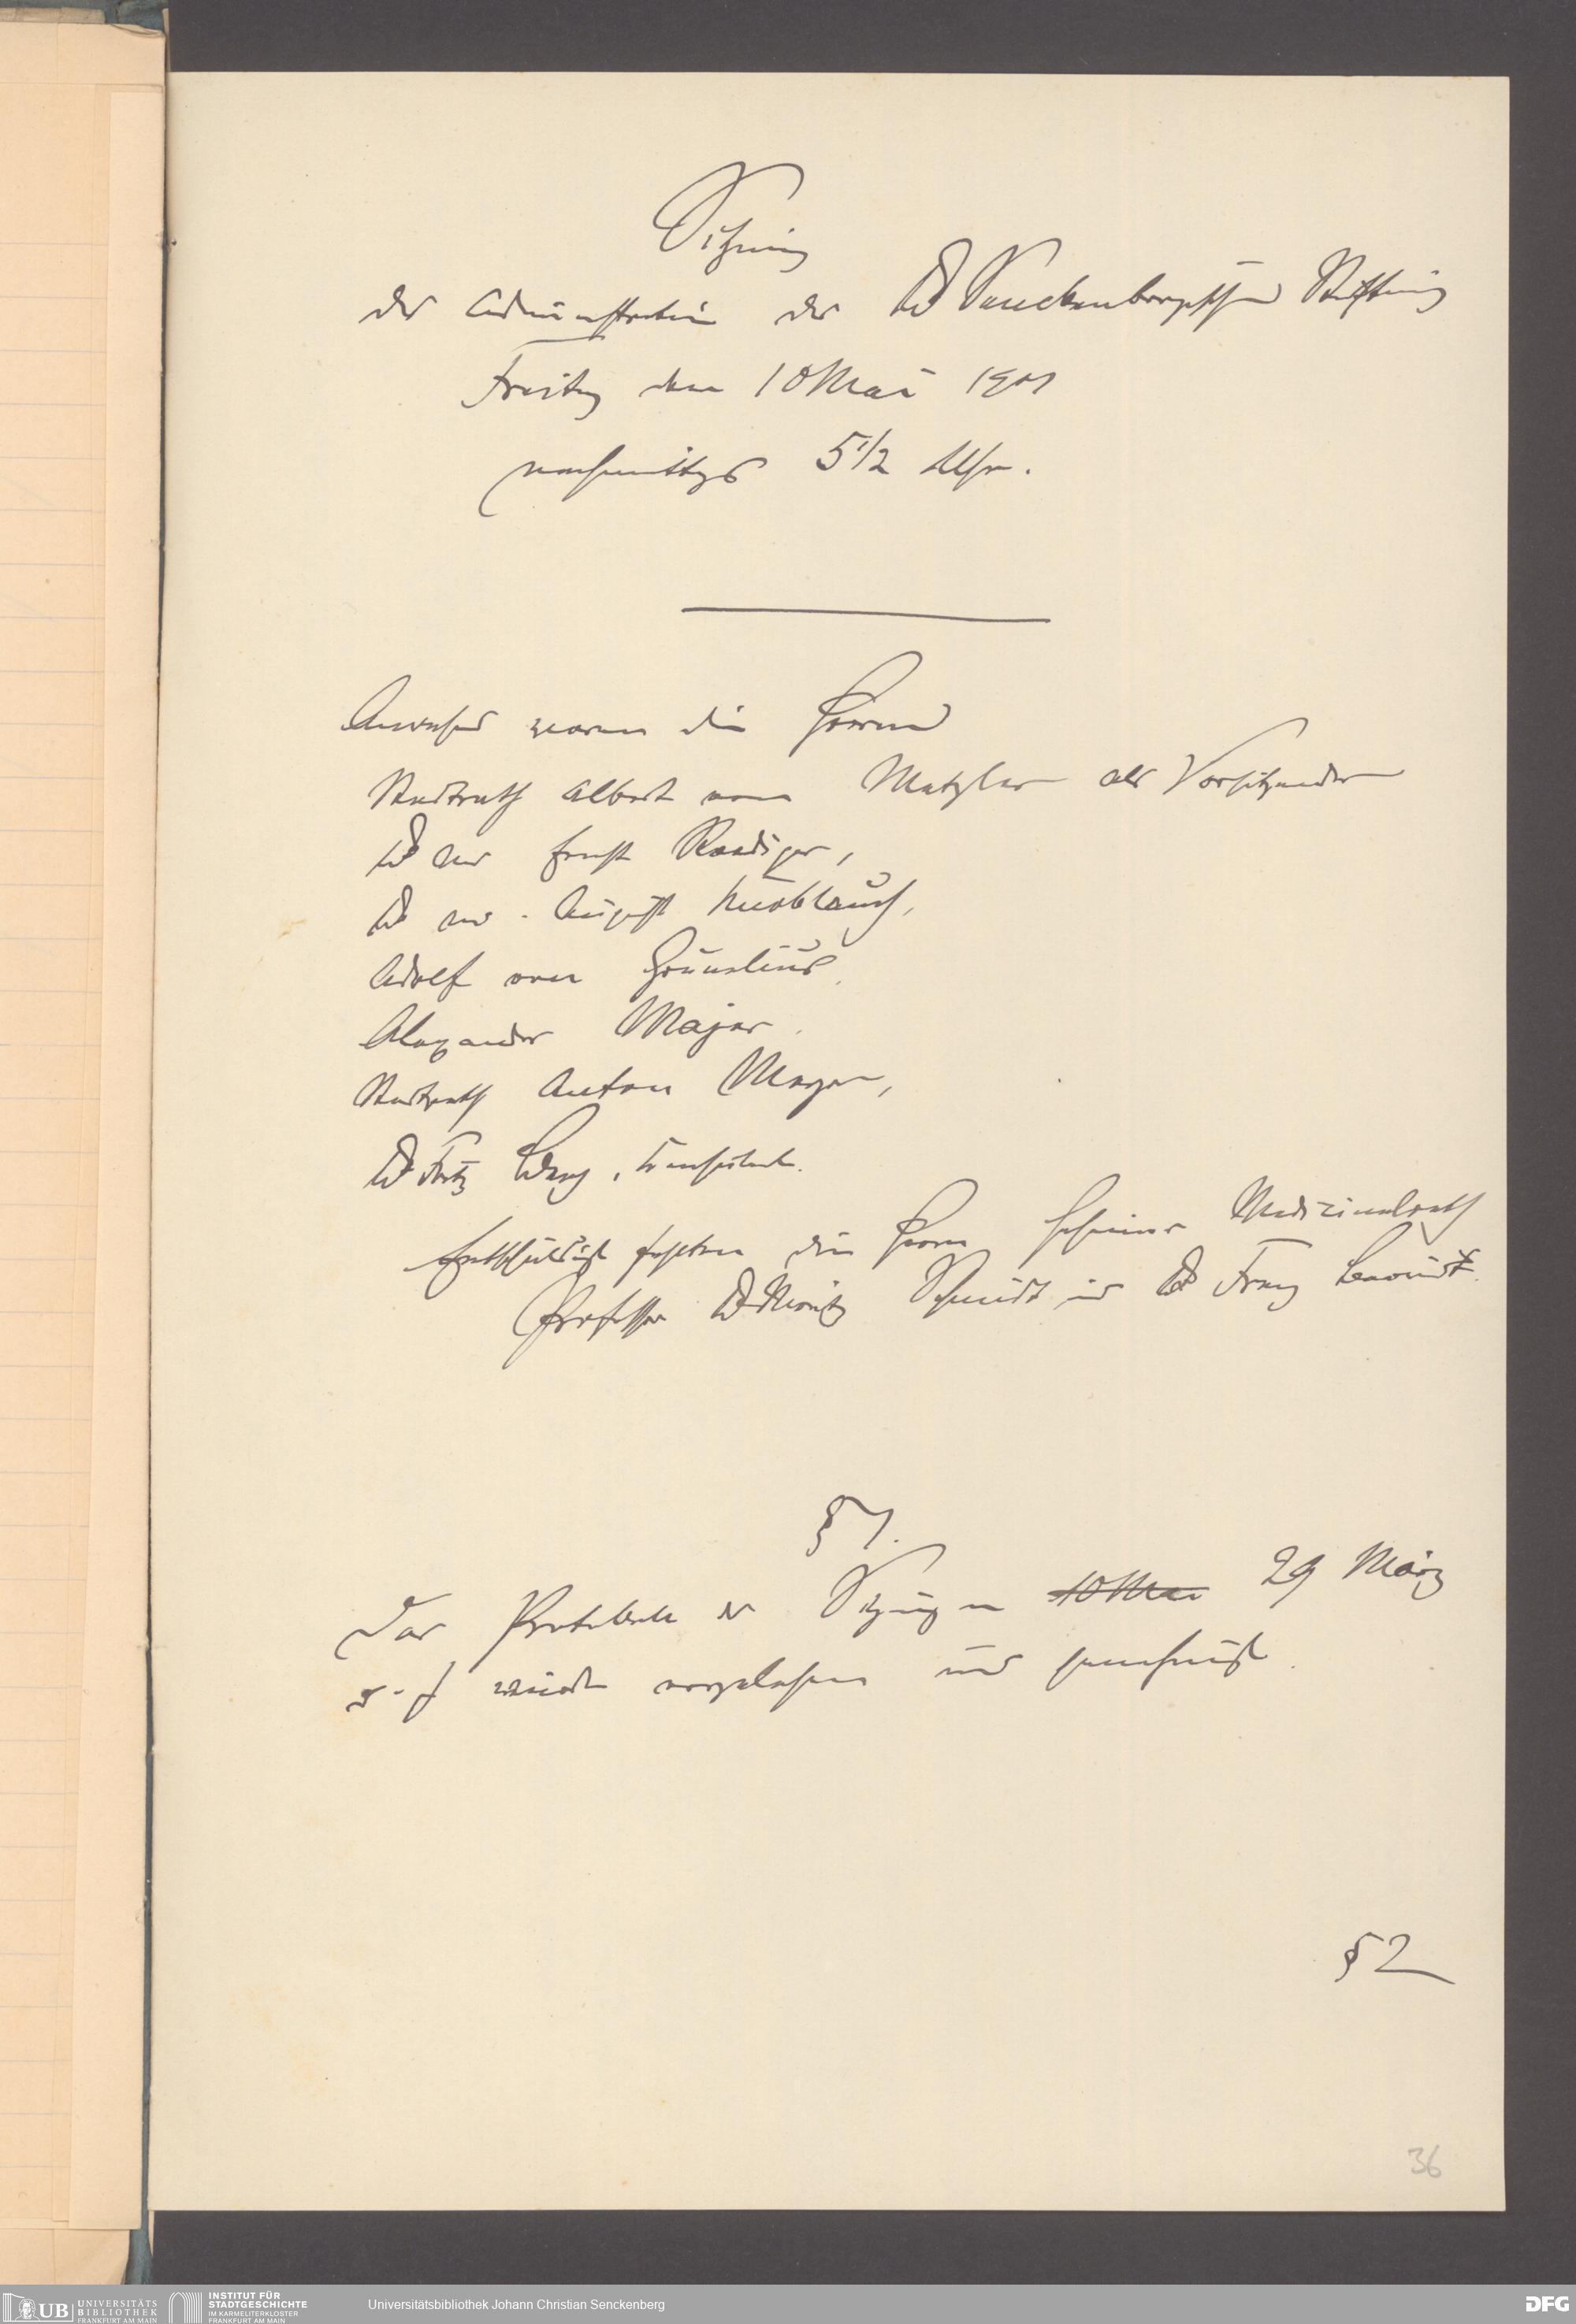 Sitzung
der Administration der Dr Senckenbergischen Stiftung
Freitag den 10 Mai 1901
nachmittags 5 1/2 Uhr.
Anwesend waren die Herren
Stadtrath Albert von Metzler als Vorsitzender
Dr med Ernst Roediger,
Dr med. August Knoblauch,
Adolf von Grunelius,
Alexander Majer.
Stadtrath Anton Meyer,
Dr Fritz Berg, Konsulent.
Entschuldigt fehlten die Herren Geheimer Medizinalrath
Professor Dr Moritz Schmidt und Dr Franz
§ 1.
Das Protokoll der Sitzung vom 10 Mai 29 März
d. J. wurde vorgelesen und genehmigt.
§ 2
36
UB UNIVERSITÄTS
BIBLIOTHEK
FRANKFURT AM MAIN
INSTITUT FÜR
STADTGESCHICHTE
IM KARMELITERKLOSTER
FRANKFURT AM MAIN
Universitätsbibliothek Johann Christian Senckenberg
DFG